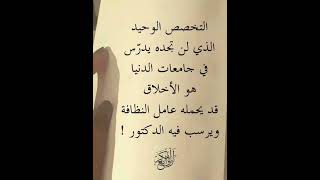 التخصص الوحيد
الذي لن تجده يدرّس
في جامعات الدنيا
هو الأخلاق
قد يحمله عامل النظافة
ويرسب فيه الدكتور !